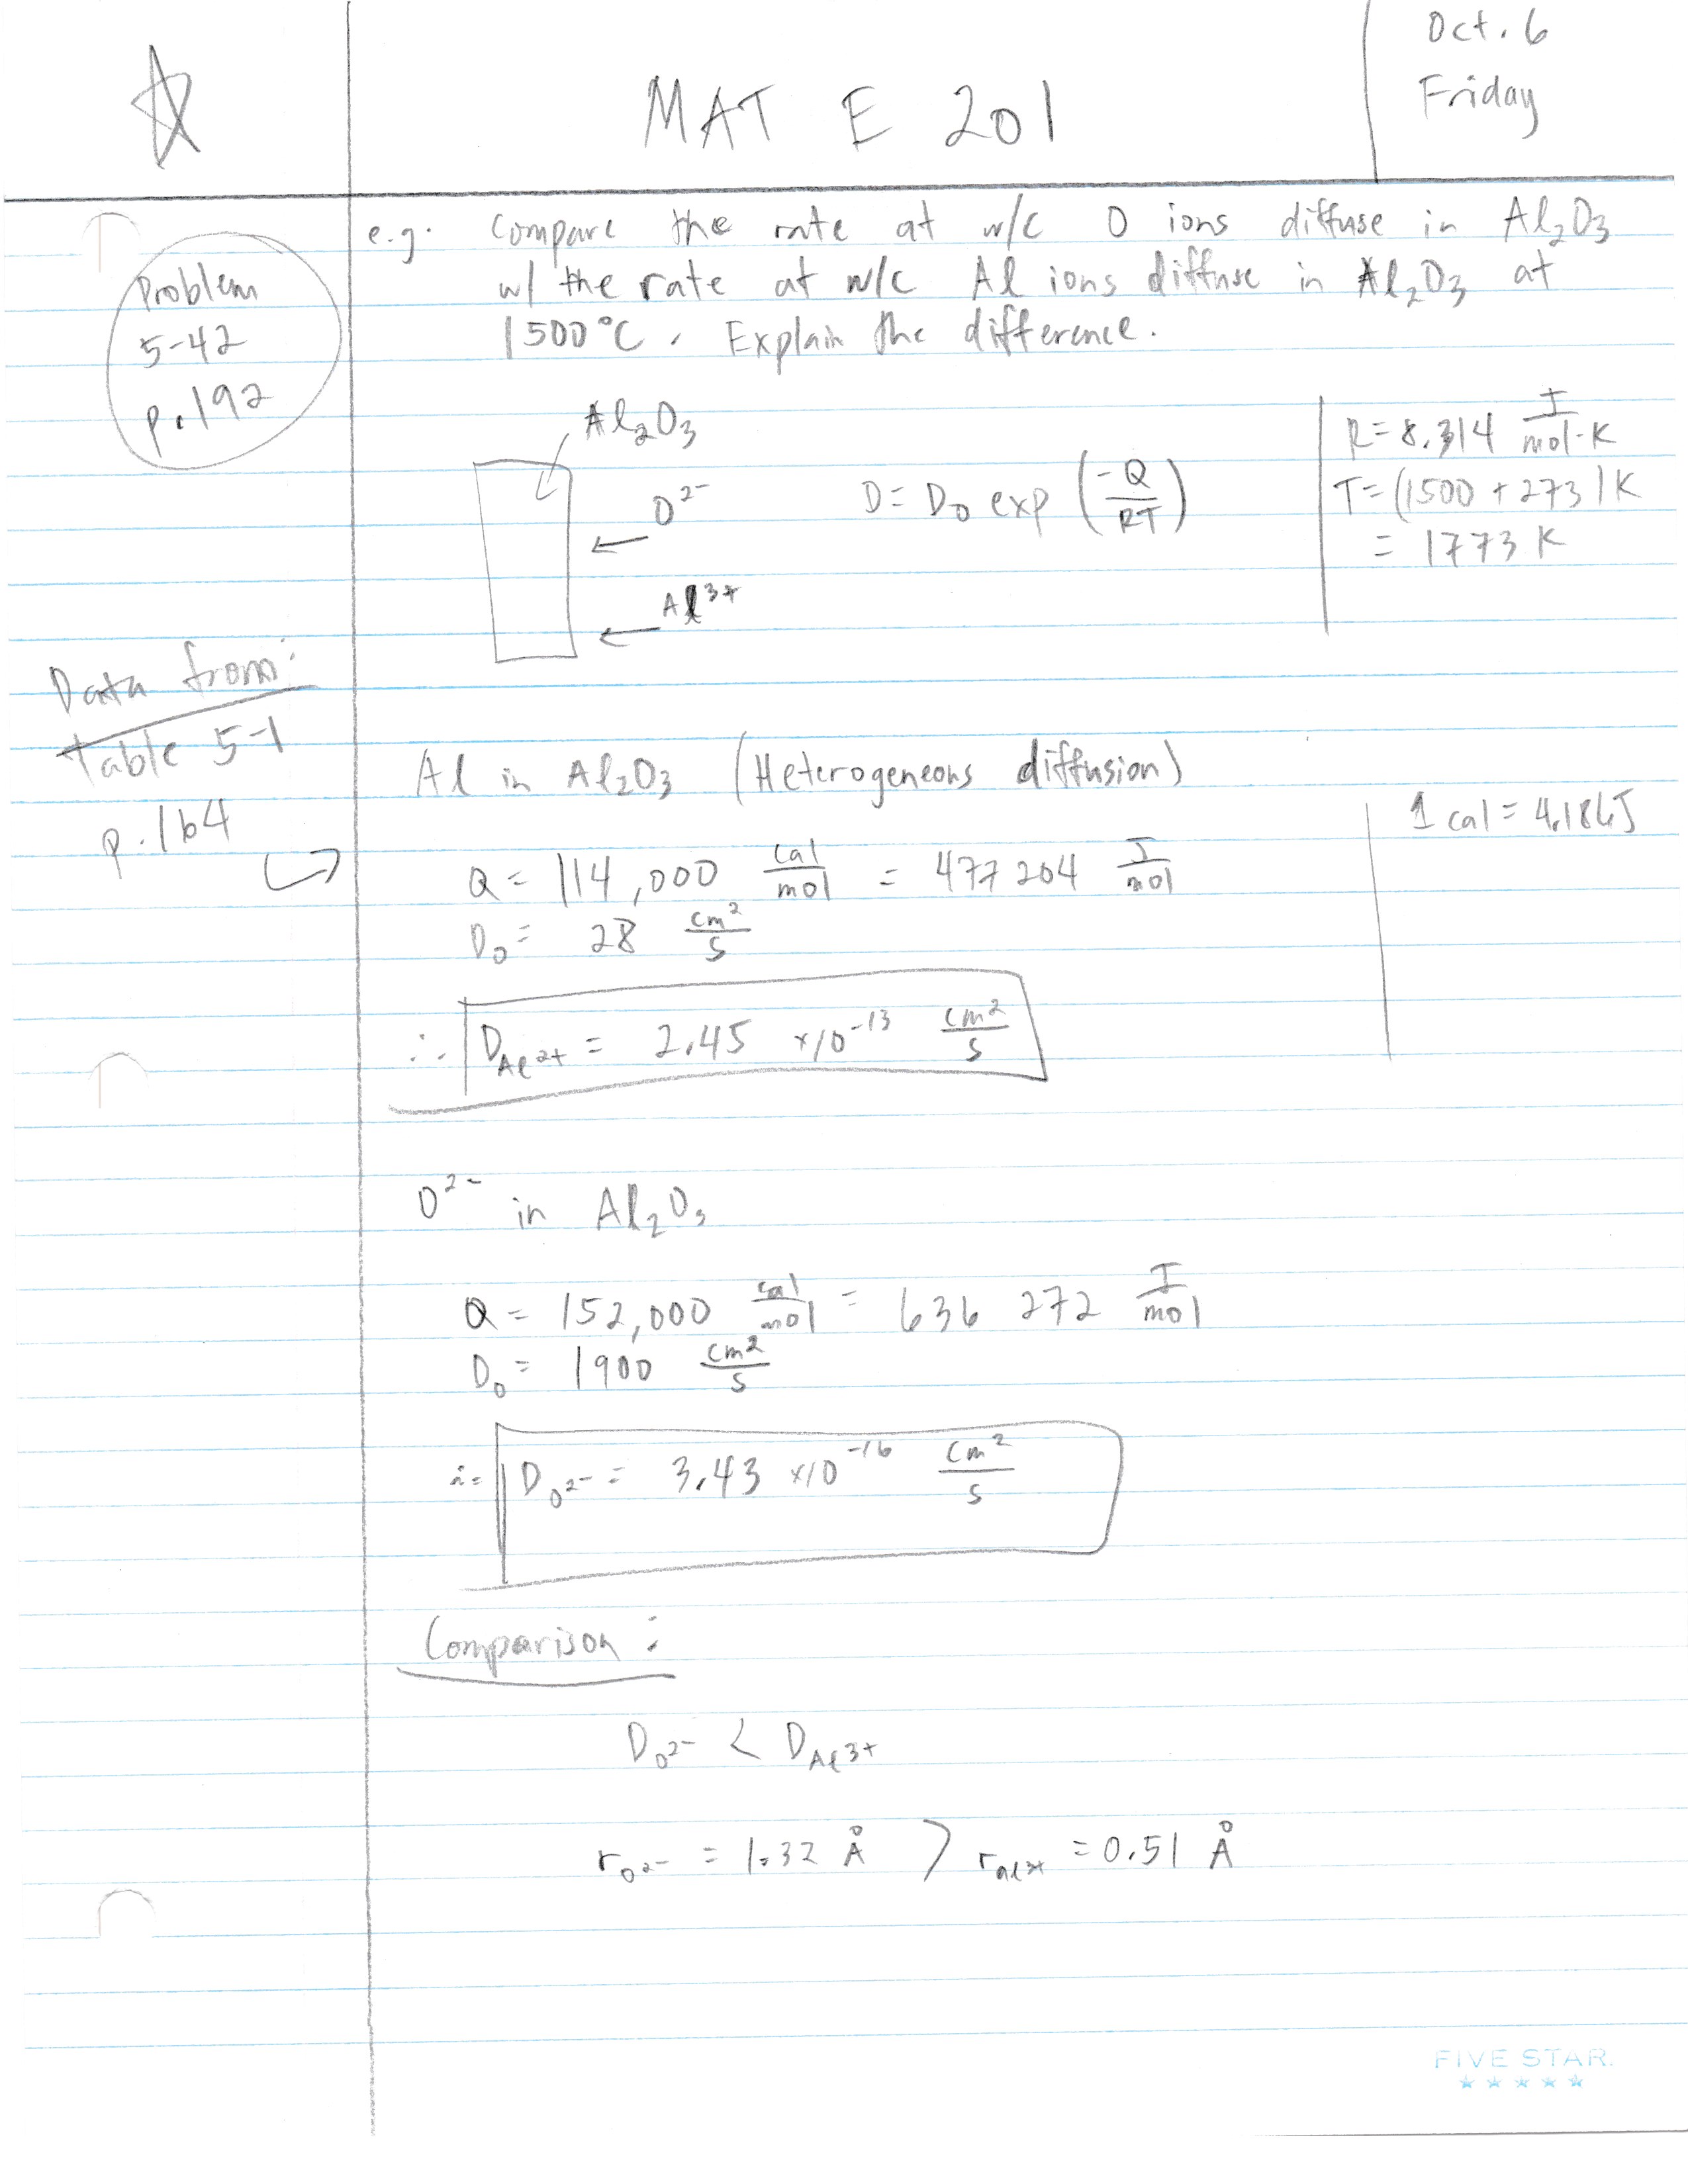 MAT E 201
Oct. 6
Friday
Problem
5-42
p.192
e.g. Compare the rate at w/c O ions diffuse in Al₂O₃
w/ the rate at w/c Al ions diffuse in Al₂O₃ at
1500°C. Explain the difference.
Al₂O₃
O²⁻
Al³⁺
D = D₀ exp (-Q/RT)
R = 8.314 J/mol·K
T = (1500 + 273) K
= 1773 K
Data from:
Table 5-1
p.164
Al in Al₂O₃ (Heterogeneous diffusion)
1 cal = 4.186J
Q = 114,000 cal/mol = 477 204 J/mol
D₀ = 28 cm²/s
∴ D Al²⁺ = 2.45 x10⁻¹³ cm²/s
O²⁻ in Al₂O₃
Q = 152,000 cal/mol = 636 272 J/mol
D₀ = 1900 cm²/s
∴ D O²⁻ = 3.43 x10⁻¹⁶ cm²/s
Comparison:
D O²⁻ < D Al³⁺
r O²⁻ = 1.32 Å > r Al³⁺ = 0.51 Å
FIVE STAR.